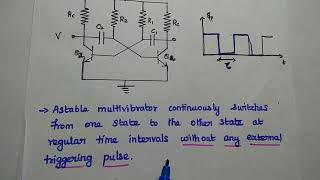 Rc R2 R1 Rc
V C2 C1
Q1 Q2
τ t
→ Astable multivibrator continuously switches
from one state to the other state at
regular time intervals without any external
triggering pulse.